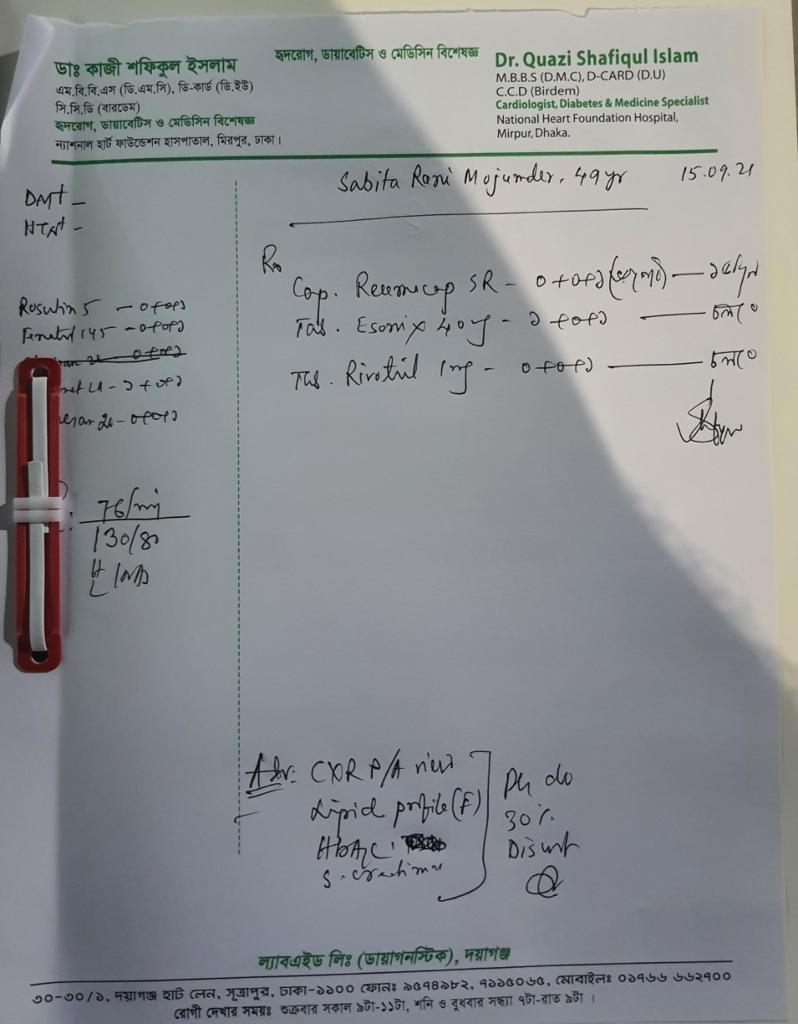 ডাঃ কাজী শফিকুল ইসলাম
এম.বি.বি.এস (ডি.এম.সি), ডি-কার্ড (ডি.ইউ)
সি.সি.ডি (বারডেম)
হৃদরোগ, ডায়াবেটিস ও মেডিসিন বিশেষজ্ঞ
ন্যাশনাল হার্ট ফাউন্ডেশন হাসপাতাল, মিরপুর, ঢাকা।
হৃদরোগ, ডায়াবেটিস ও মেডিসিন বিশেষজ্ঞ
Dr. Quazi Shafiqul Islam
M.B.B.S (D.M.C), D-CARD (D.U)
C.C.D (Birdem)
Cardiologist, Diabetes & Medicine Specialist
National Heart Foundation Hospital,
Mirpur, Dhaka.
Sabita Rani Mojumder, 49 yr 15.09.21
DM+ -
HTN+ -
Rosutin 5 - ০+০+১
145 - ০+০+১
- ০+০+১
- ১+০+১
20 - ০+০+১
76/mi
130/80
H
L
Rx
Cap. SR - ০+০+১
Tab. Esonix 40 mg - ১+০+১ — চলবে
Tab. Rivotril 1 mg - ০+০+১ — চলবে
Adv: CXR P/A view
Lipid profile (F)
HbA1C
S. creatinine
30%
ল্যাবএইড লিঃ (ডায়াগনস্টিক), দয়াগঞ্জ
৩০-৩০/১, দয়াগঞ্জ হাট লেন, সূত্রাপুর, ঢাকা-১১০০ ফোনঃ ৯৫৭৪৯৮২, ৭১১৫০৬৫, মোবাইলঃ ০১৭৬৬ ৬৬২৭০০
রোগী দেখার সময়ঃ শুক্রবার সকাল ৯টা-১১টা, শনি ও বুধবার সন্ধ্যা ৭টা-রাত ৯টা।